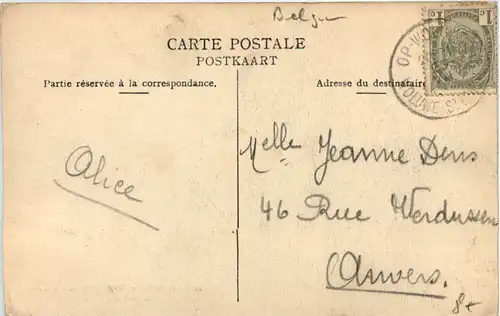 Belgien
CARTE POSTALE
POSTKAART
Partie réservée à la correspondance.
Adresse du destinataire
Alice
Melle Jeanne Dens
46 Rue Werdussen
Anvers.
8€